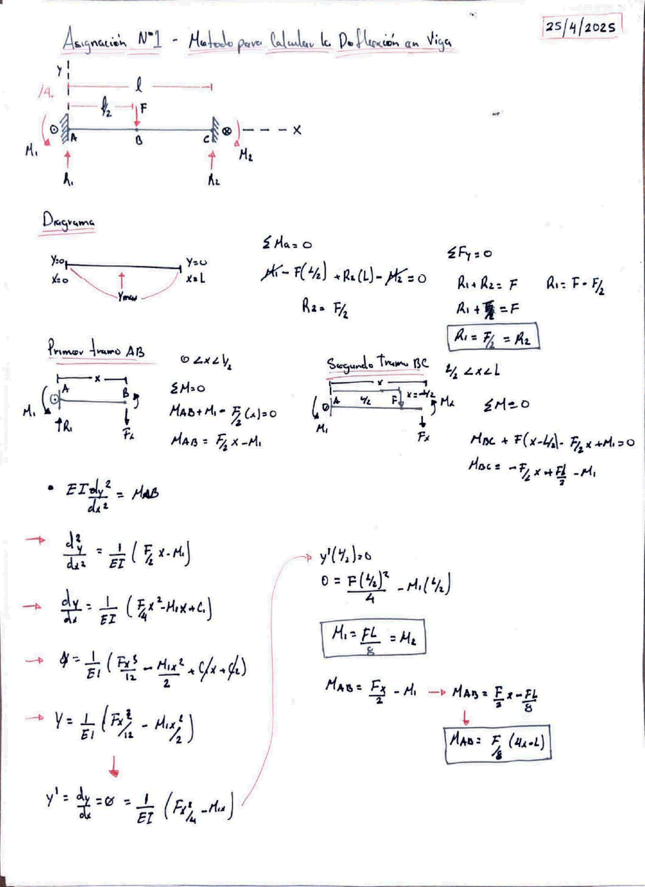 25/4/2025
Asignación N°1 - Metodo para Calcular la Deflexión en Viga
14.
y
l
l/2
F
A
B
C
x
M₁
M₂
R₁
R₂
Diagrama
y=0
x=0
y=0
x=L
Ymax
ΣMa=0
M₁ - F(L/2) + R₂(L) - M₂ = 0
R₂ = F/2
ΣFy=0
R₁+R₂ = F
R₁ = F - F/2
R₁ + F/2 = F
R₁ = F/2 = R₂
Primer tramo AB
0 < x < L/2
x
A
B
M₁
R₁
Fx
ΣM=0
MAB + M₁ - F/2 (x) = 0
MAB = F/2 x - M₁
Segundo Tramo BC
L/2 < x < L
x
A
L/2
F
x-L/2
Mx
M₁
Fx
ΣM=0
MBC + F(x-L/2) - F/2 x + M₁ = 0
MBC = -F/2 x + FL/2 - M₁
• EI dy²/dx² = MAB
→ d²y/dx² = 1/EI (F/2 x - M₁)
→ dy/dx = 1/EI (F/4 x² - M₁x + C₁)
→ y = 1/EI (Fx³/12 - M₁x²/2 + C₁x + C₂)
→ Y = 1/EI (Fx³/12 - M₁x²/2)
y' = dy/dx = 0 = 1/EI (Fx²/4 - M₁x)
→ y'(L/2) = 0
0 = F(L/2)²/4 - M₁(L/2)
M₁ = FL/8 = M₂
MAB = Fx/2 - M₁ → MAB = F/2 x - FL/8
MAB = F/8 (4x-L)